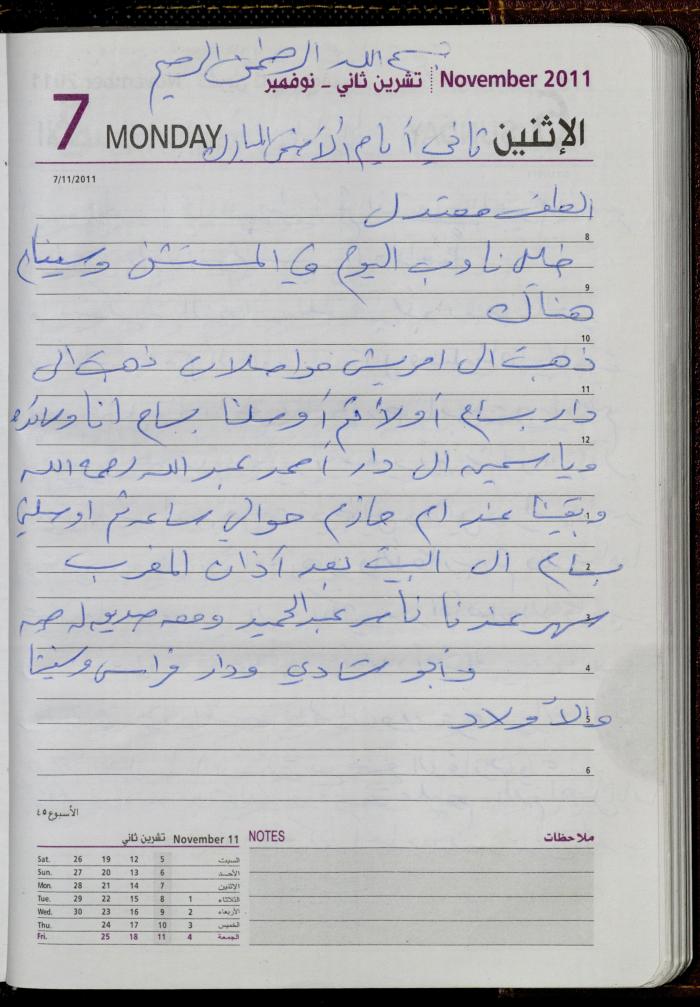 بسم الله الرحمن الرحيم
November 2011 تشرين ثاني - نوفمبر
7 MONDAY ثاني أيام الأضحى المبارك الإثنين
7/11/2011
الطقس معتدل
8
خليل ناوب اليوم في المستشفى وسينام
9
هناك
10
ذهبت الى امريش مواصلات ذهبت الى
11
دار بسام أولا ثم أوصلنا بسام انا
12
وياسمين الى دار أحمد عبد الله رحمه الله
1
وبقينا عند ام حازم حوالي ساعه ثم اوصلنا
2
بسام الى البيت بعد آذان المغرب
3
سهر عندنا ناصر عبد الحميد ومعه صديق له
4
وأبو شادي ودار فراس
5
والأولاد
6
الأسبوع ٤٥
November 11 تشرين ثاني
Sat. 26 19 12 5 السبت
Sun. 27 20 13 6 الأحد
Mon. 28 21 14 7 الإثنين
Tue. 29 22 15 8 1 الثلاثاء
Wed. 30 23 16 9 2 الأربعاء
Thu. 24 17 10 3 الخميس
Fri. 25 18 11 4 الجمعة
NOTES ملاحظات